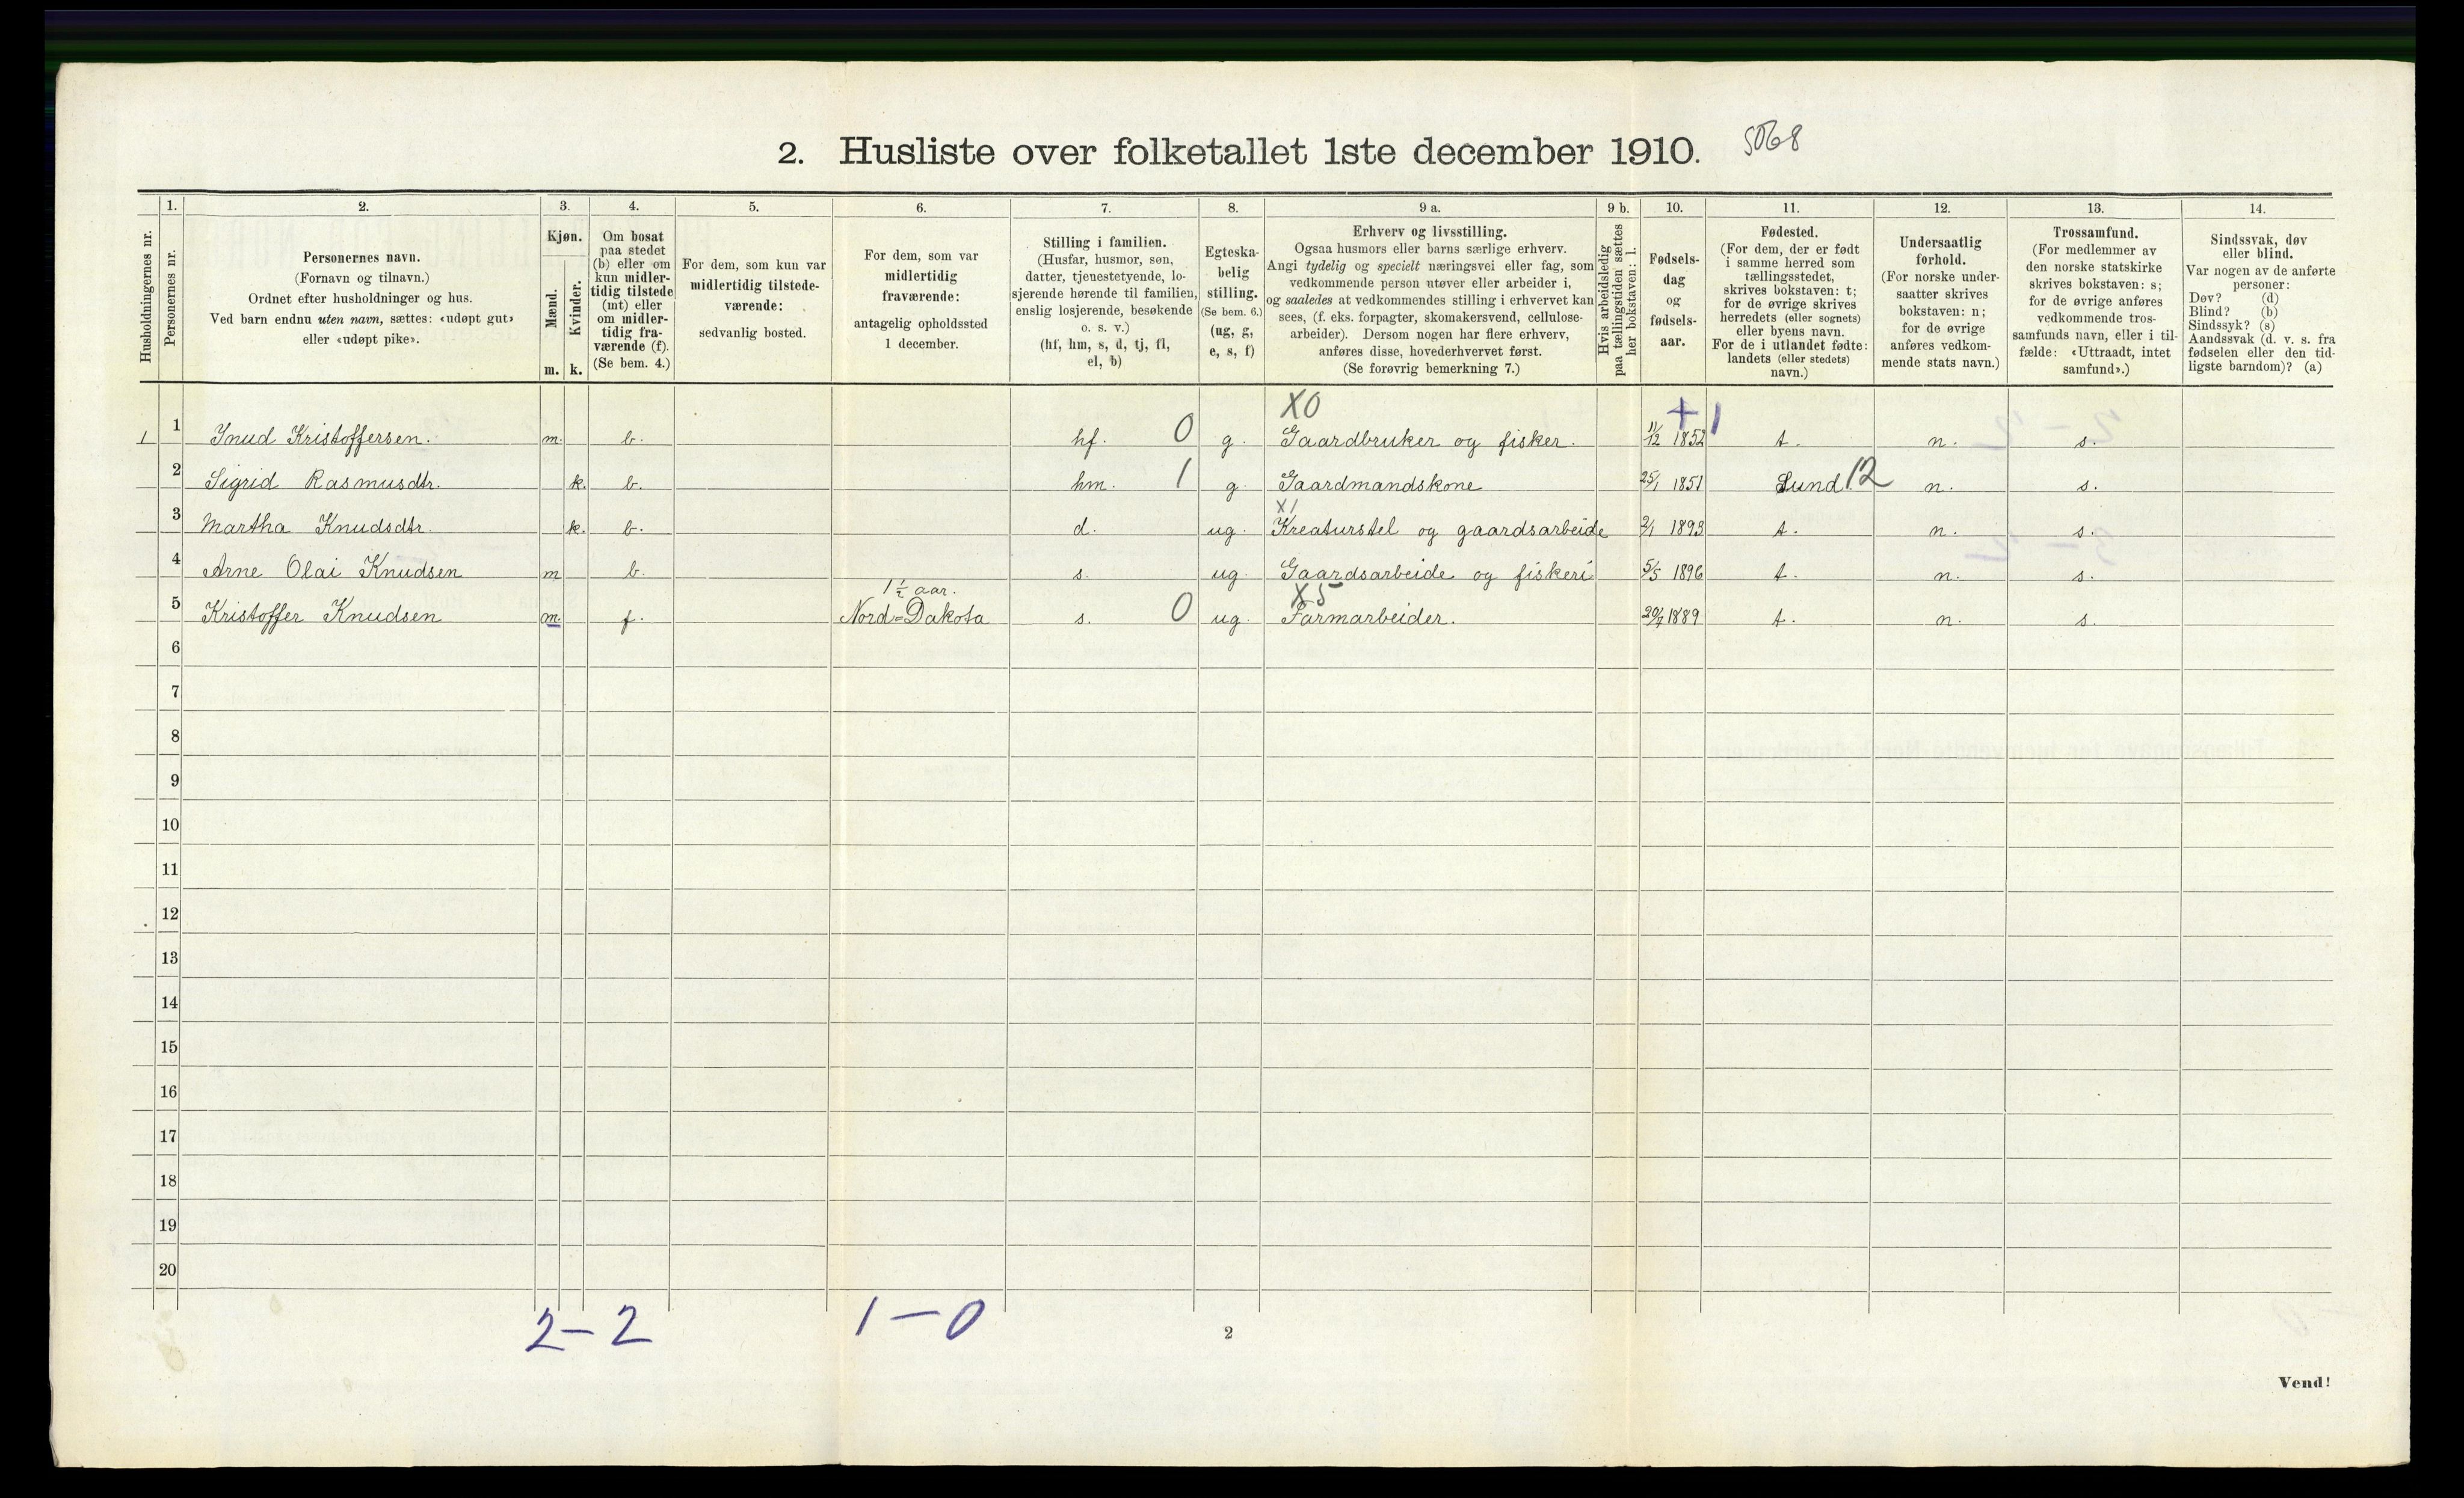 2. Husliste over folketallet 1ste december 1910. 5068
1. 2. 3. 4. 5. 6. 7. 8. 9 a. 9 b. 10. 11. 12. 13. 14.
Husholdningernes nr.
Personernes nr.
Personernes navn.
(Fornavn og tilnavn.)
Ordnet efter husholdninger og hus.
Ved barn endnu uten navn, sættes: «udøpt gut»
eller «udøpt pike».
Kjøn.
Mænd.
Kvinder.
m. k.
Om bosat
paa stedet
(b) eller om
kun midler-
tidig tilstede
(mt) eller
om midler-
tidig fra-
værende (f).
(Se bem. 4.)
For dem, som kun var
midlertidig tilstede-
værende:
sedvanlig bosted.
For dem, som var
midlertidig
fraværende:
antagelig opholdssted
1 december.
Stilling i familien.
(Husfar, husmor, søn,
datter, tjenestetyende, lo-
sjerende hørende til familien,
enslig losjerende, besøkende
o. s. v.)
(hf, hm, s, d, tj, fl,
el, b)
Egteska-
belig
stilling.
(Se bem. 6.)
(ug, g,
e, s, f)
Erhverv og livsstilling.
Ogsaa husmors eller barns særlige erhverv.
Angi tydelig og specielt næringsvei eller fag, som
vedkommende person utøver eller arbeider i,
og saaledes at vedkommendes stilling i erhvervet kan
sees, (f. eks. forpagter, skomakersvend, cellulose-
arbeider). Dersom nogen har flere erhverv,
anføres disse, hovederhvervet først.
(Se forøvrig bemerkning 7.)
Hvis arbeidsledig
paa tællingstiden sættes
her bokstaven: l.
Fødsels-
dag
og
fødsels-
aar.
Fødested.
(For dem, der er født
i samme herred som
tællingsstedet,
skrives bokstaven: t;
for de øvrige skrives
herredets (eller sognets)
eller byens navn.
For de i utlandet fødte:
landets (eller stedets)
navn.)
Undersaatlig
forhold.
(For norske under-
saatter skrives
bokstaven: n;
for de øvrige
anføres vedkom-
mende stats navn.)
Trossamfund.
(For medlemmer av
den norske statskirke
skrives bokstaven: s;
for de øvrige anføres
vedkommende tros-
samfunds navn, eller i til-
fælde: «Uttraadt, intet
samfund».)
Sindssvak, døv
eller blind.
Var nogen av de anførte
personer:
Døv? (d)
Blind? (b)
Sindssyk? (s)
Aandssvak (d. v. s. fra
fødselen eller den tid-
ligste barndom)? (a)
X0 + 1
1 1 Knud Kristoffersen. m. b. hf. 0 g. Gaardbruker og fisker. 11/12 1852 t. n. s.
2 Sigrid Rasmusdtr. k. b. hm. 1 g. Gaardmandskone 25/1 1851 Lund. 12 n. s.
X1
3 Martha Knudsdtr. k. b. d. ug. Kreaturstel og gaardsarbeide 2/1 1893 t. n. s.
4 Arne Olai Knudsen m b. s. ug. Gaardsarbeide og fiskeri 5/5 1896 t. n. s.
1 1/2 aar. X5
5 Kristoffer Knudsen m. f. Nord=Dakota s. 0 ug. Farmarbeider. 20/7 1889 t. n. s.
6
7
8
9
10
11
12
13
14
15
16
17
18
19
20
2-2 1-0
2
Vend!